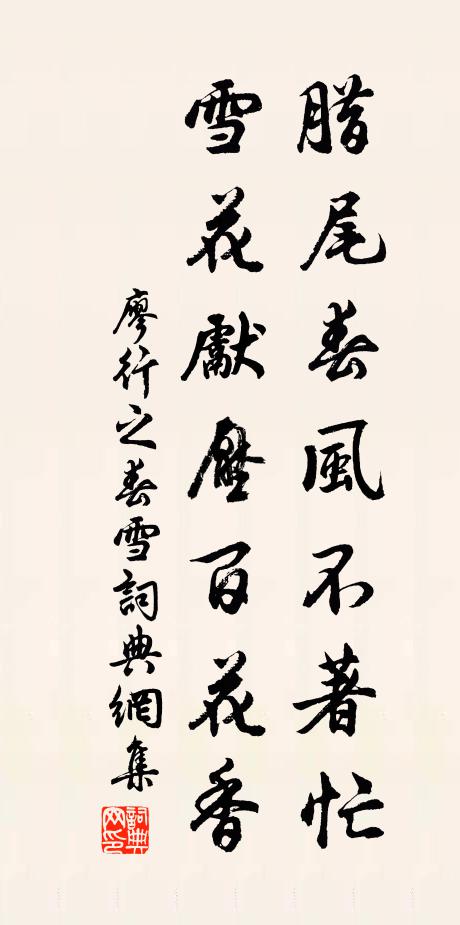 腊尾春風不著忙
雪花獻壓百花香
廖行之春雪詞典網集
詞典网印